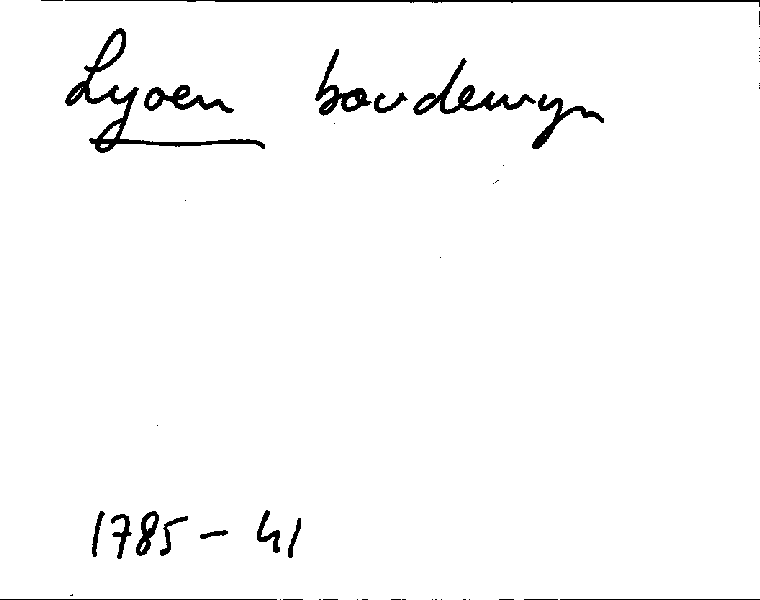 Lyoen boudewyn
1785 - 41